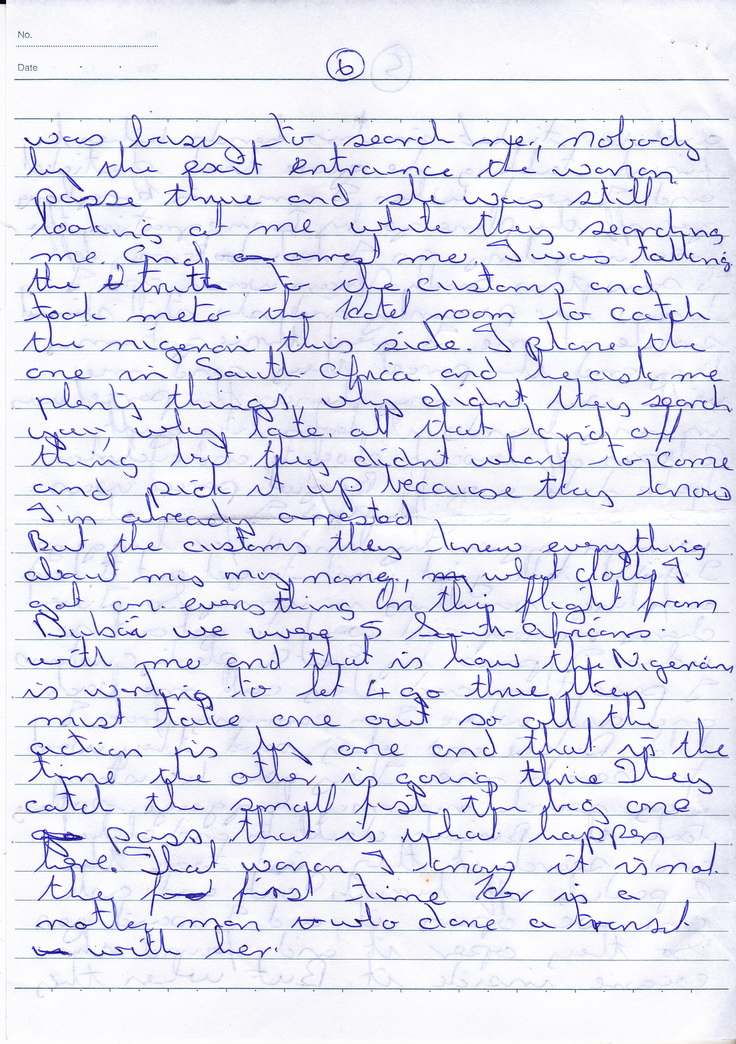 No.
Date
6
was busy to search me, nobody
by the exit entrance the woman
passe thrue and she was still
looking at me while they searching
me. And arrest me. I was talking
the truth to the customs and
took me to the hotel room to catch
the nigerian this side. I phone the
one in South Africa and he ask me
plenty things, why didnt they search
you, why late. all that kind off
thing but they didnt want to come
and pick it up because they know
I'm already arrested
But the customs they knew everything
about my name, what cloths I
got on everything On this flight from
Dubai we were 5 South Africans
with me and that is how the Nigerians
is working to let 4 go thrue they
must take one out so all the
action is by one and that is the
time the other is going thrue They
catch the small fish the big one
pass, that is what happen
here. That woman I know it is not
the first time her is a
nother man who done a transit
with her.